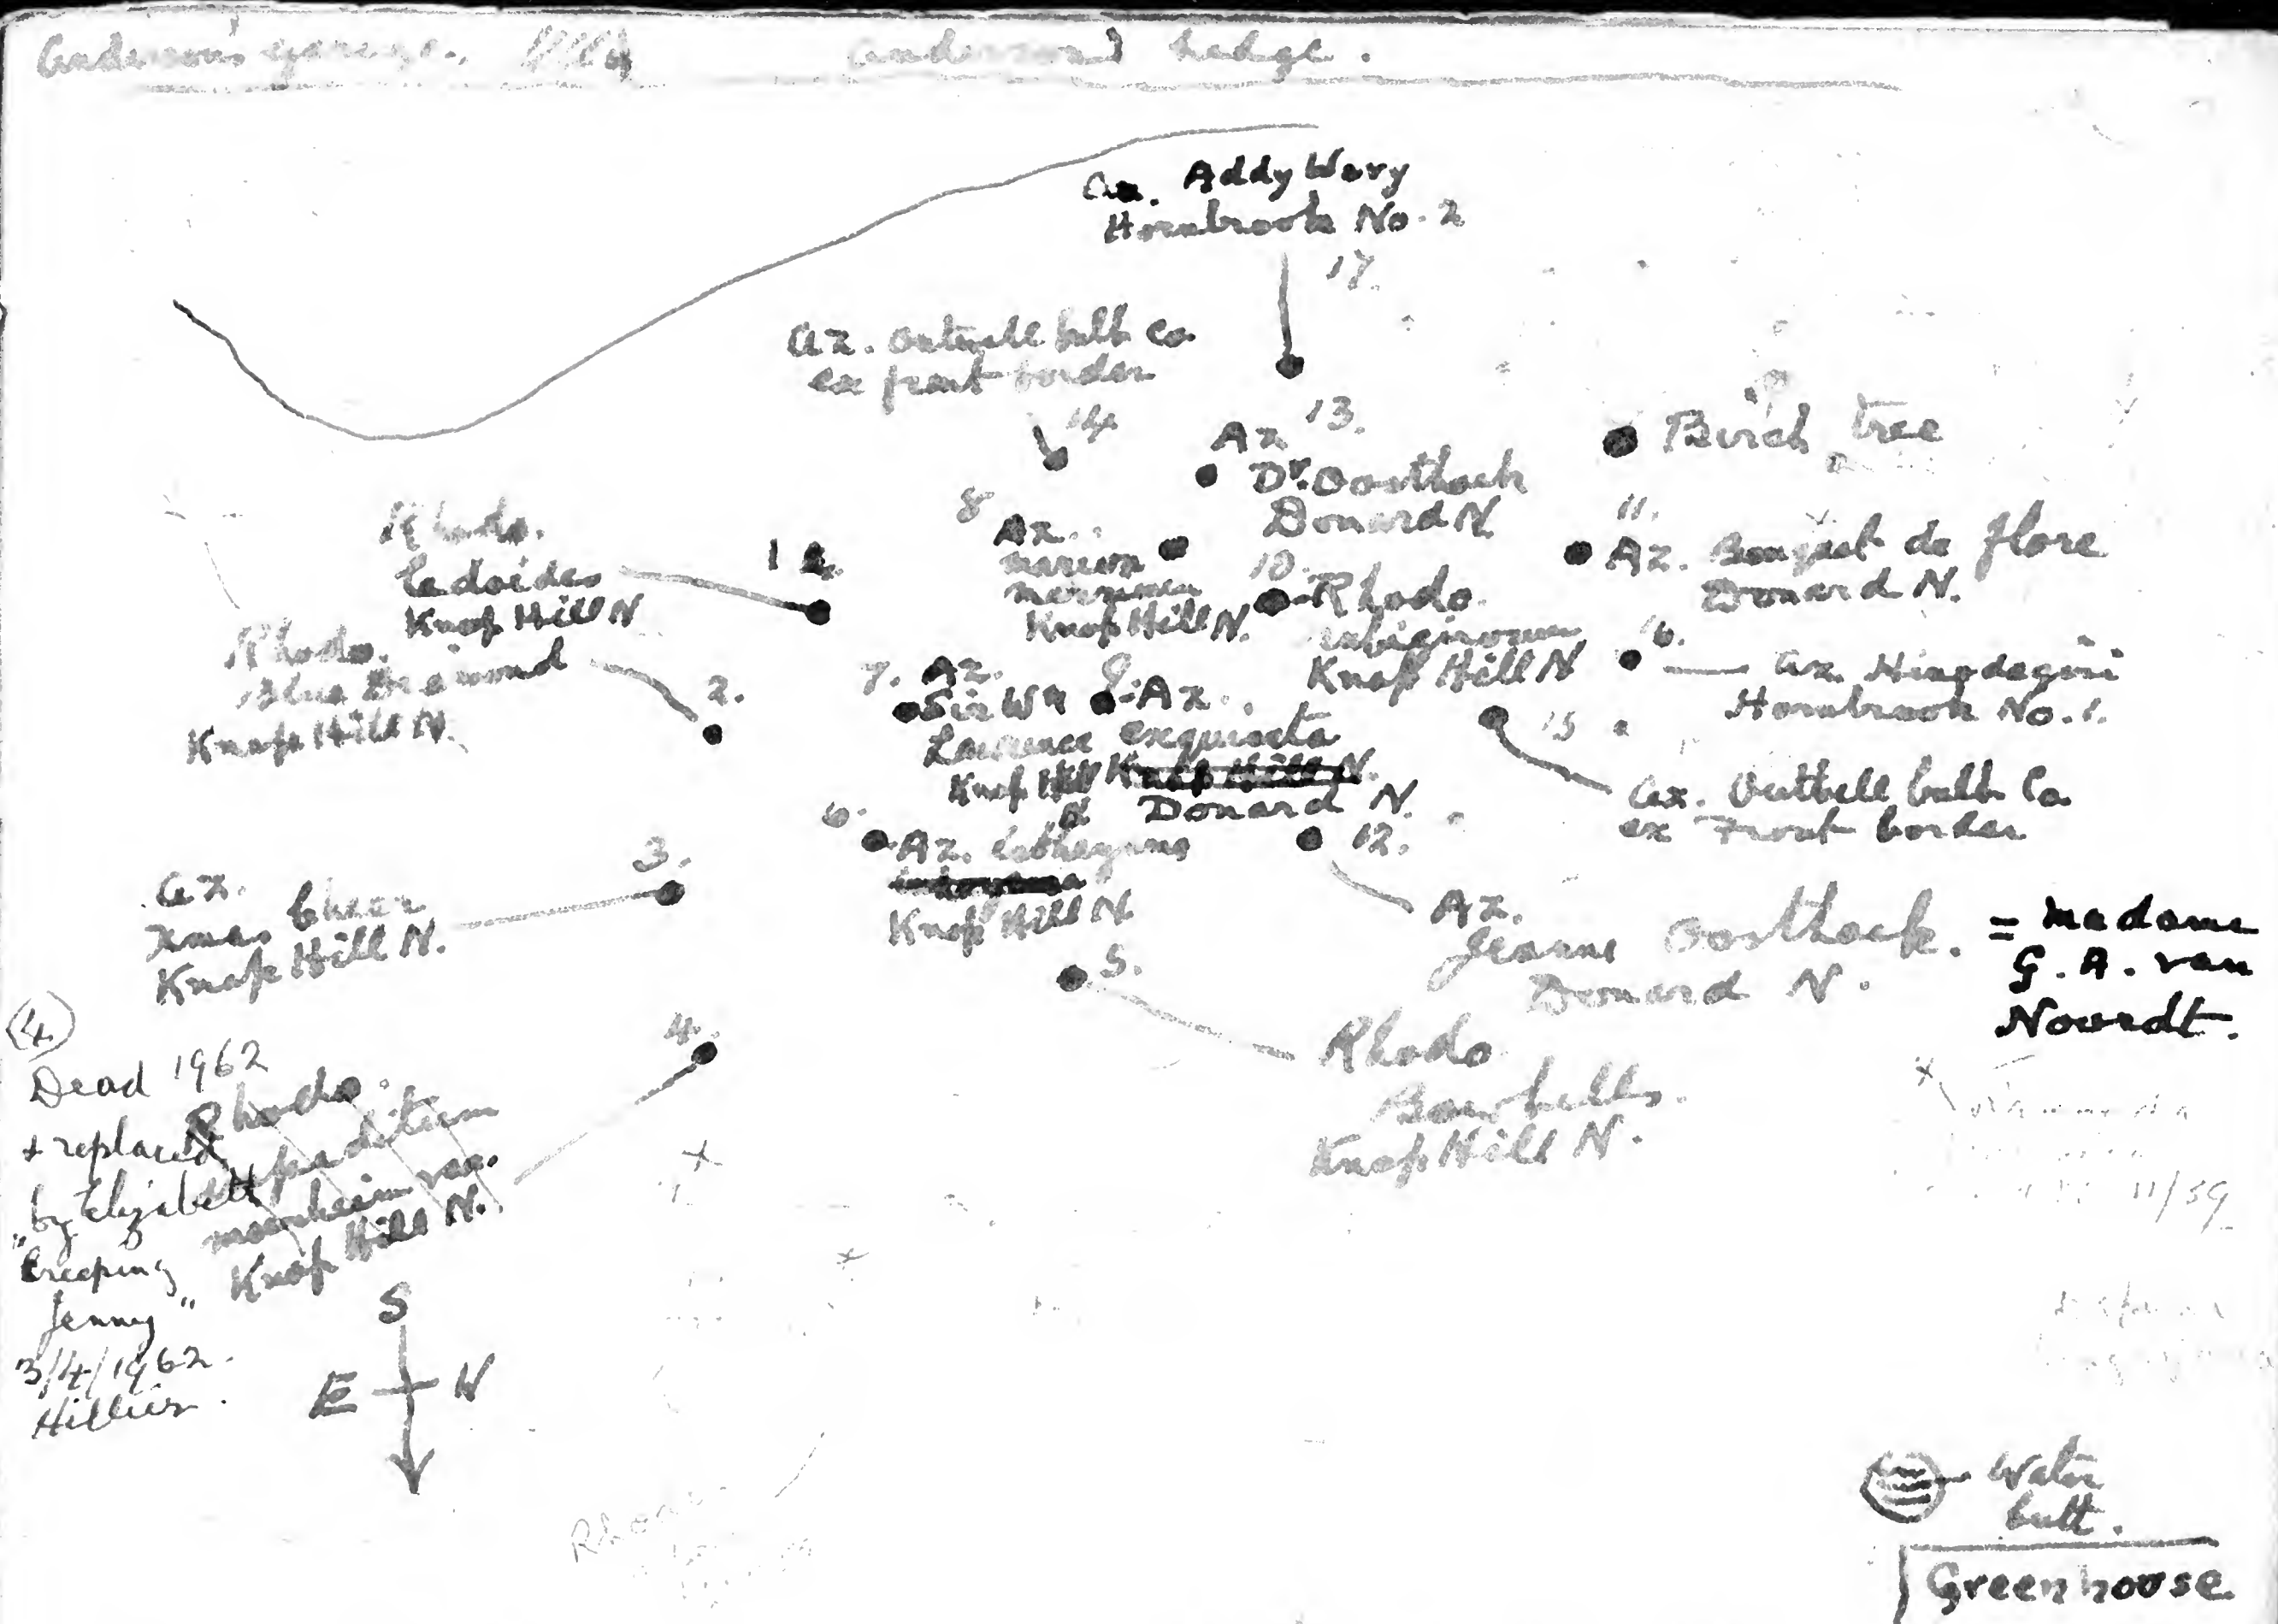 Anderson's garage.
Anderson's hedge.
Az. Addy Wery
Hornbrook No. 2
17.
Az. Outwell bulb Co
ex front border
14
13.
Az
Dr. Oosthoek
Donard N.
Birch tree
8
Az.
Marion
merriman
Knap Hill N.
11.
Az. Bouquet de flore
Donard N.
Rhodo.
ledoides
Knap Hill N
1
10.
Rhodo.
rubiginosum
Knap Hill N
Rhodo.
Blue Diamond
Knap Hill N.
2.
7. Az.
Sir Wm
Lawrence
Knap Hill
N
9. Az.
exquisita
Knap Hill N.
Donard N.
16.
Az. Hinodegiri
Hornbrook No. 1.
15
Az. Outwell bulb Co
ex Front border
6.
Az.
Knap Hill N.
12.
Az.
Jeanne Oosthoek.
Donard N.
= Madame
G. A. van
Noordt.
3.
Az.
Xmas Cheer
Knap Hill N.
5.
Rhodo
Bowbells.
Knap Hill N.
4.
Rhodo.
impeditum
moerheim var.
Knap Hill N.
(4)
Dead 1962
+ replaced
by Elizabeth
"Creeping
Jenny"
3/4/1962.
Hillier.
11/59
S
E W
Rhodo
Water
butt.
Greenhouse